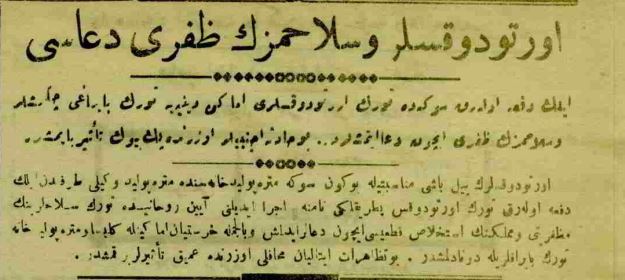 اورتودوقسلر و سلاحمزك ظفری دعاسی
ایلك دفعه اولارق سوكه‌ده تورك اورتودوقسلری اماكن دینیه یه تورك بایراغی چكمشلر
و سلاحمزك ظفری ایچون دعا ایتمشلردر.. بو حادثه اجنبیلر اوزرنده پك بیوك تأثیر یاپمشدر
اورتودوقسلرك ییل باشی مناسبتیله بوكون سوكه متره‌پولیدخانه‌سنده متره‌پولید وكیلی طرفندن ایلك
دفعه اوله‌رق تورك اورتودوقس بطریقلكی نامنه اجرا ایدیلن آیین روحانیده تورك سلاحلرینك
مظفرتی و مملكتك استخلاص قطعیسی ایچون دعالر ایدلمش و بالجمله خرستیان اماكنیله كلیسا و متره‌پولید خانه
تورك بایراقلریله دوناتلمشدر. بو تظاهرات ایتالیان محافلی اوزرنده عمیق تأثیرلر براقمشدر.